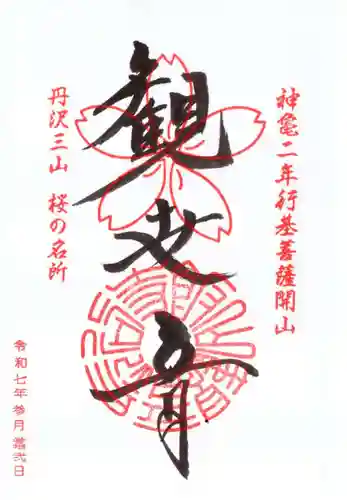 神亀二年行基菩薩開山
観世音
丹沢三山 桜の名所
令和七年参月拾弐日